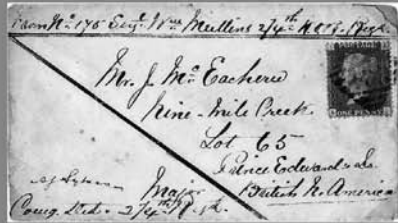 From No. 175 Sergt. Wm Mullins 2/4th K.O.R. Regt.
Mr. J. McEachern
Nine-Mile Creek
Lot 65
Prince Edward's Is.
British N. America
Major
Comg. Det. 2/4th Regt.
POSTAGE
ONE PENNY